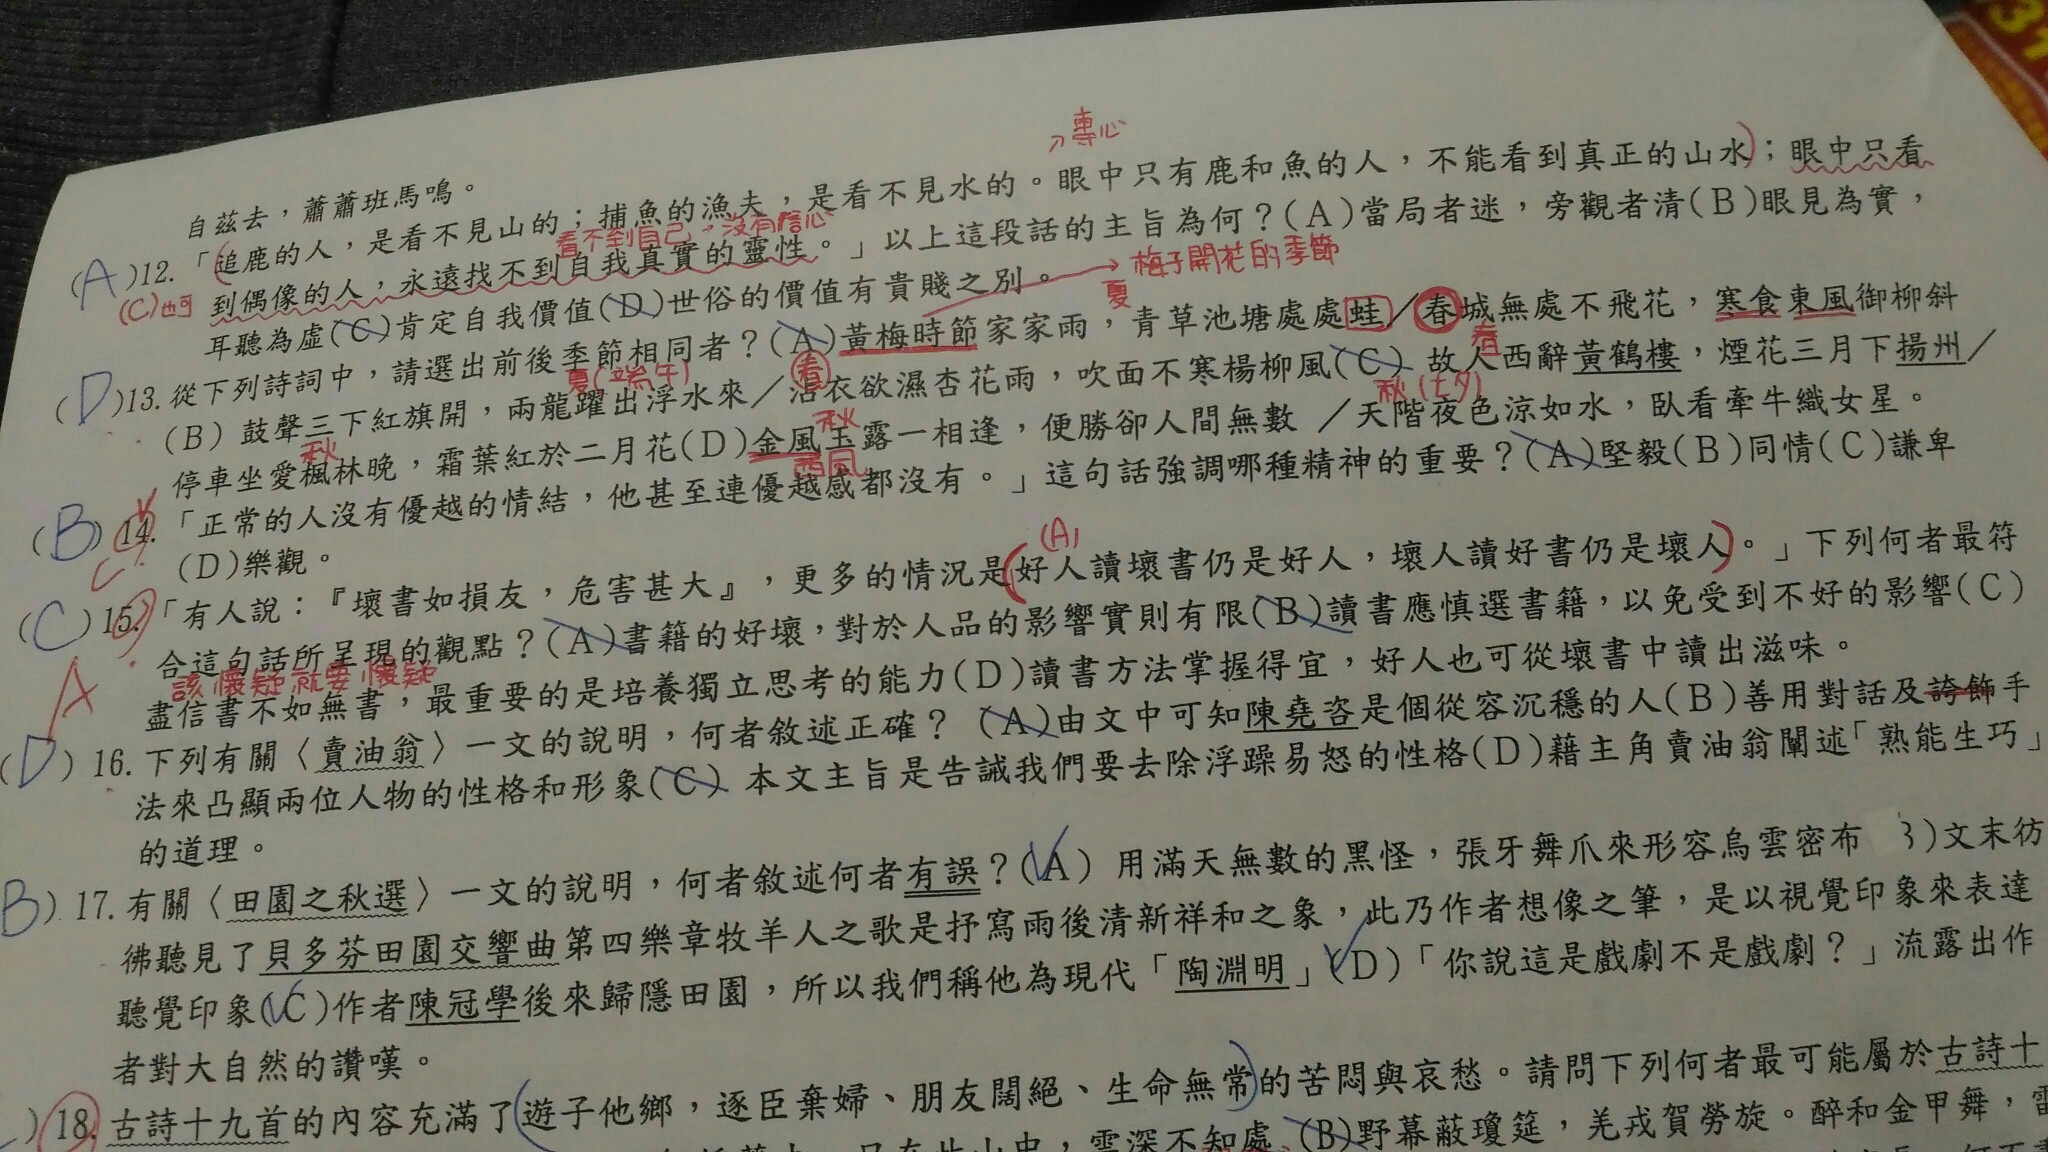 自茲去，蕭蕭班馬鳴。
專心
(A)12.「追鹿的人，是看不見山的；捕魚的漁夫，是看不見水的。眼中只有鹿和魚的人，不能看到真正的山水；眼中只看
看不到自己，沒有信心
(C)也可 到偶像的人，永遠找不到自我真實的靈性。」以上這段話的主旨為何？(A)當局者迷，旁觀者清(B)眼見為實，
耳聽為虛(C)肯定自我價值(D)世俗的價值有貴賤之別。
→梅子開花的季節
夏
(D)13.從下列詩詞中，請選出前後季節相同者？(A)黃梅時節家家雨，青草池塘處處蛙／春城無處不飛花，寒食東風御柳斜
夏(端午) 春 春
(B) 鼓聲三下紅旗開，兩龍躍出浮水來／沾衣欲濕杏花雨，吹面不寒楊柳風(C) 故人西辭黃鶴樓，煙花三月下揚州／
秋 秋 秋(七夕)
停車坐愛楓林晚，霜葉紅於二月花(D)金風玉露一相逢，便勝卻人間無數 ／天階夜色涼如水，臥看牽牛織女星。
西風
(B)14.「正常的人沒有優越的情結，他甚至連優越感都沒有。」這句話強調哪種精神的重要？(A)堅毅(B)同情(C)謙卑
C
(D)樂觀。
(A)
(C)15.「有人說：『壞書如損友，危害甚大』，更多的情況是好人讀壞書仍是好人，壞人讀好書仍是壞人。」下列何者最符
A
合這句話所呈現的觀點？(A)書籍的好壞，對於人品的影響實則有限(B)讀書應慎選書籍，以免受到不好的影響(C)
該懷疑就要懷疑
盡信書不如無書，最重要的是培養獨立思考的能力(D)讀書方法掌握得宜，好人也可從壞書中讀出滋味。
(D) 16.下列有關〈賣油翁〉一文的說明，何者敘述正確？ (A)由文中可知陳堯咨是個從容沉穩的人(B)善用對話及誇飾手
法來凸顯兩位人物的性格和形象(C) 本文主旨是告誡我們要去除浮躁易怒的性格(D)藉主角賣油翁闡述「熟能生巧」
的道理。
B) 17.有關〈田園之秋選〉一文的說明，何者敘述何者有誤？(A) 用滿天無數的黑怪，張牙舞爪來形容烏雲密布 )文末彷
彿聽見了貝多芬田園交響曲第四樂章牧羊人之歌是抒寫雨後清新祥和之象，此乃作者想像之筆，是以視覺印象來表達
聽覺印象(C)作者陳冠學後來歸隱田園，所以我們稱他為現代「陶淵明」(D)「你說這是戲劇不是戲劇？」流露出作
者對大自然的讚嘆。
)18.古詩十九首的內容充滿了遊子他鄉，逐臣棄婦、朋友闊絕、生命無常的苦悶與哀愁。請問下列何者最可能屬於古詩十
只在此山中，雲深不知處 (B)野幕蔽瓊筵，羌戎賀勞旋。醉和金甲舞，雷